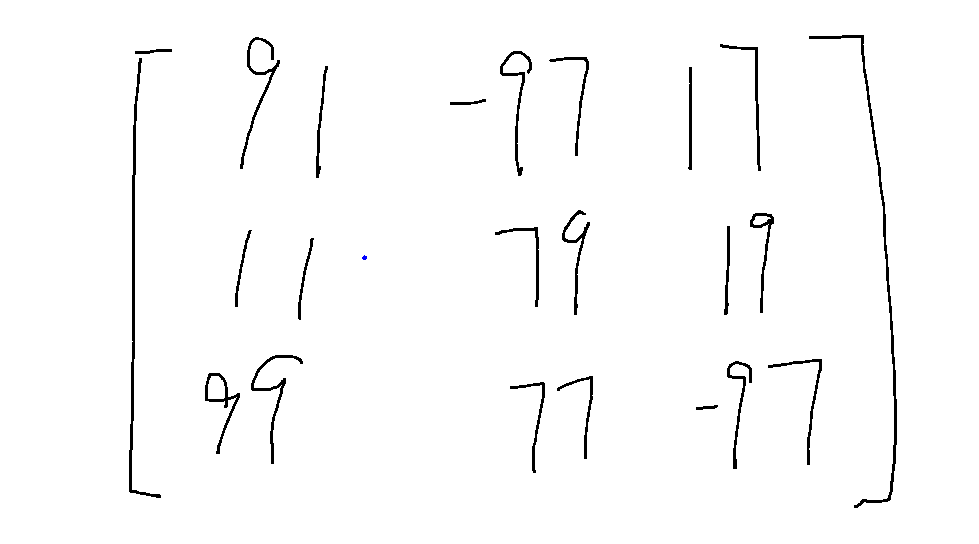 91 -97 17
11 79 19
99 77 -97